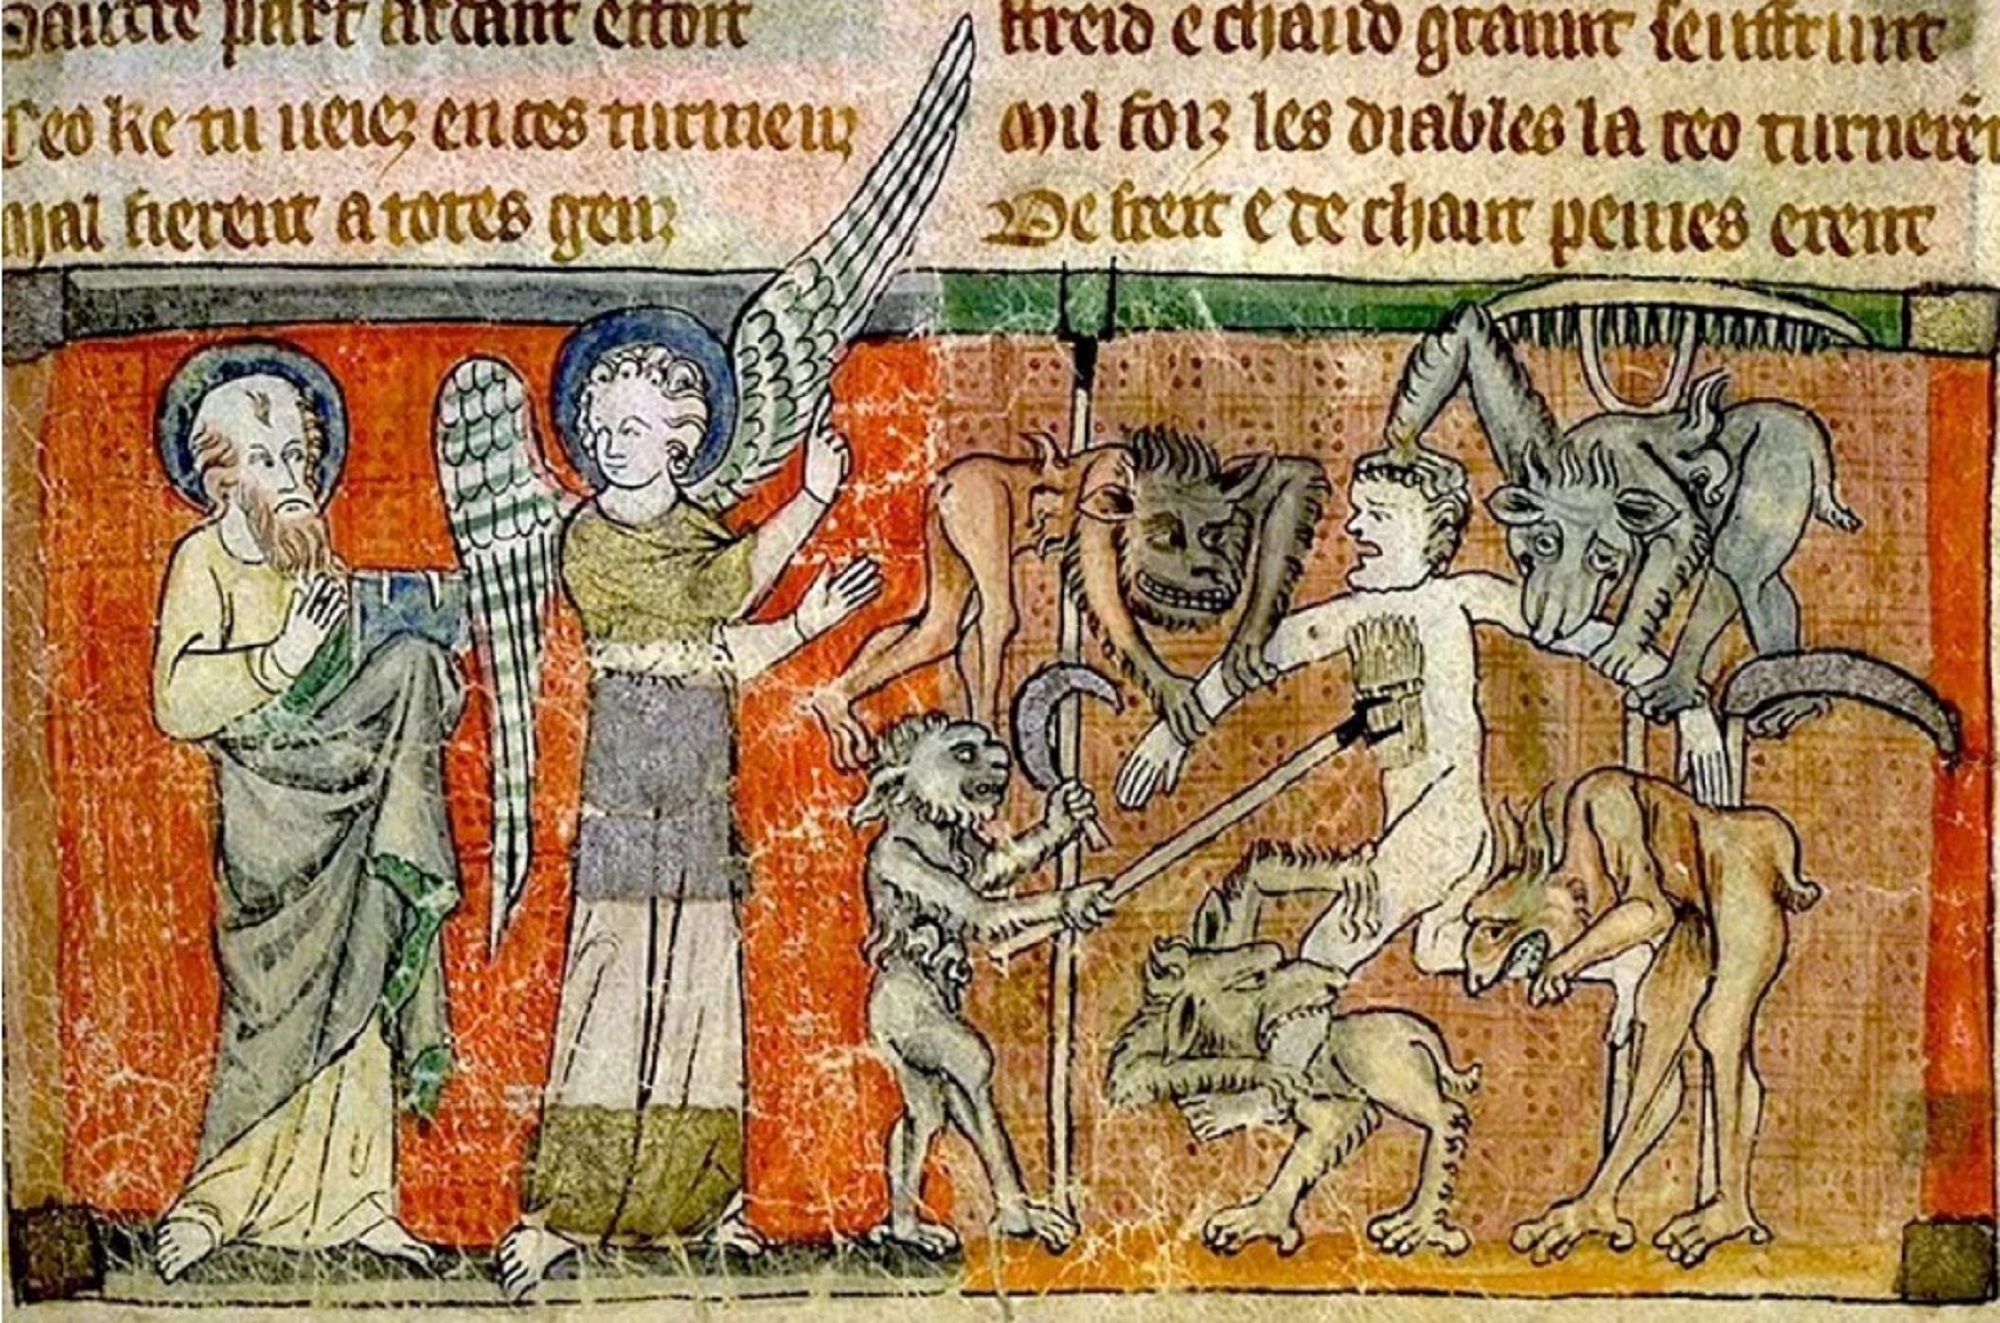 Dautre part ardant estoit
Ceo ke tu ueiez en ces turmenz
Mal fierent a totes genz
ffreid e chaud seuffrunt
Mil foiz les diables la ceo
De freit e de chaut peines erent